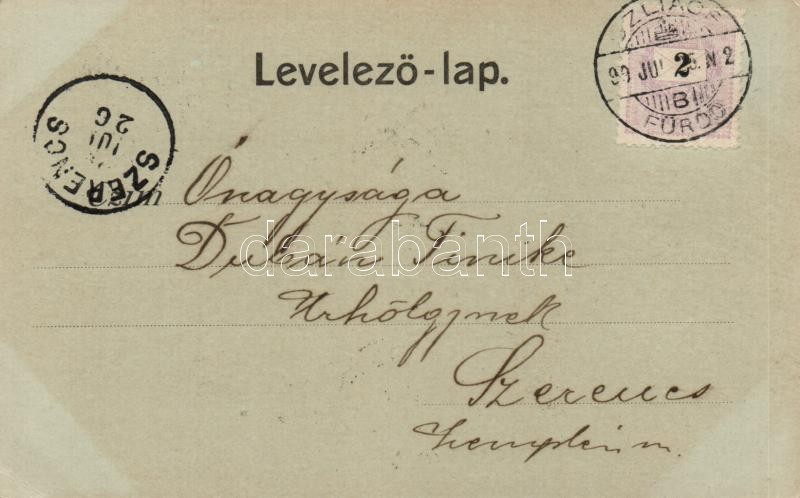 Levelező-lap.
SZLIÁCS
99 JUL 25 N 2
B
FÜRDŐ
2
SZERENCS
JUL
26
Czim
Ónagysága
Dubán Finike
Urhölgynek
Szerencs
Zemplén m.
darabanth